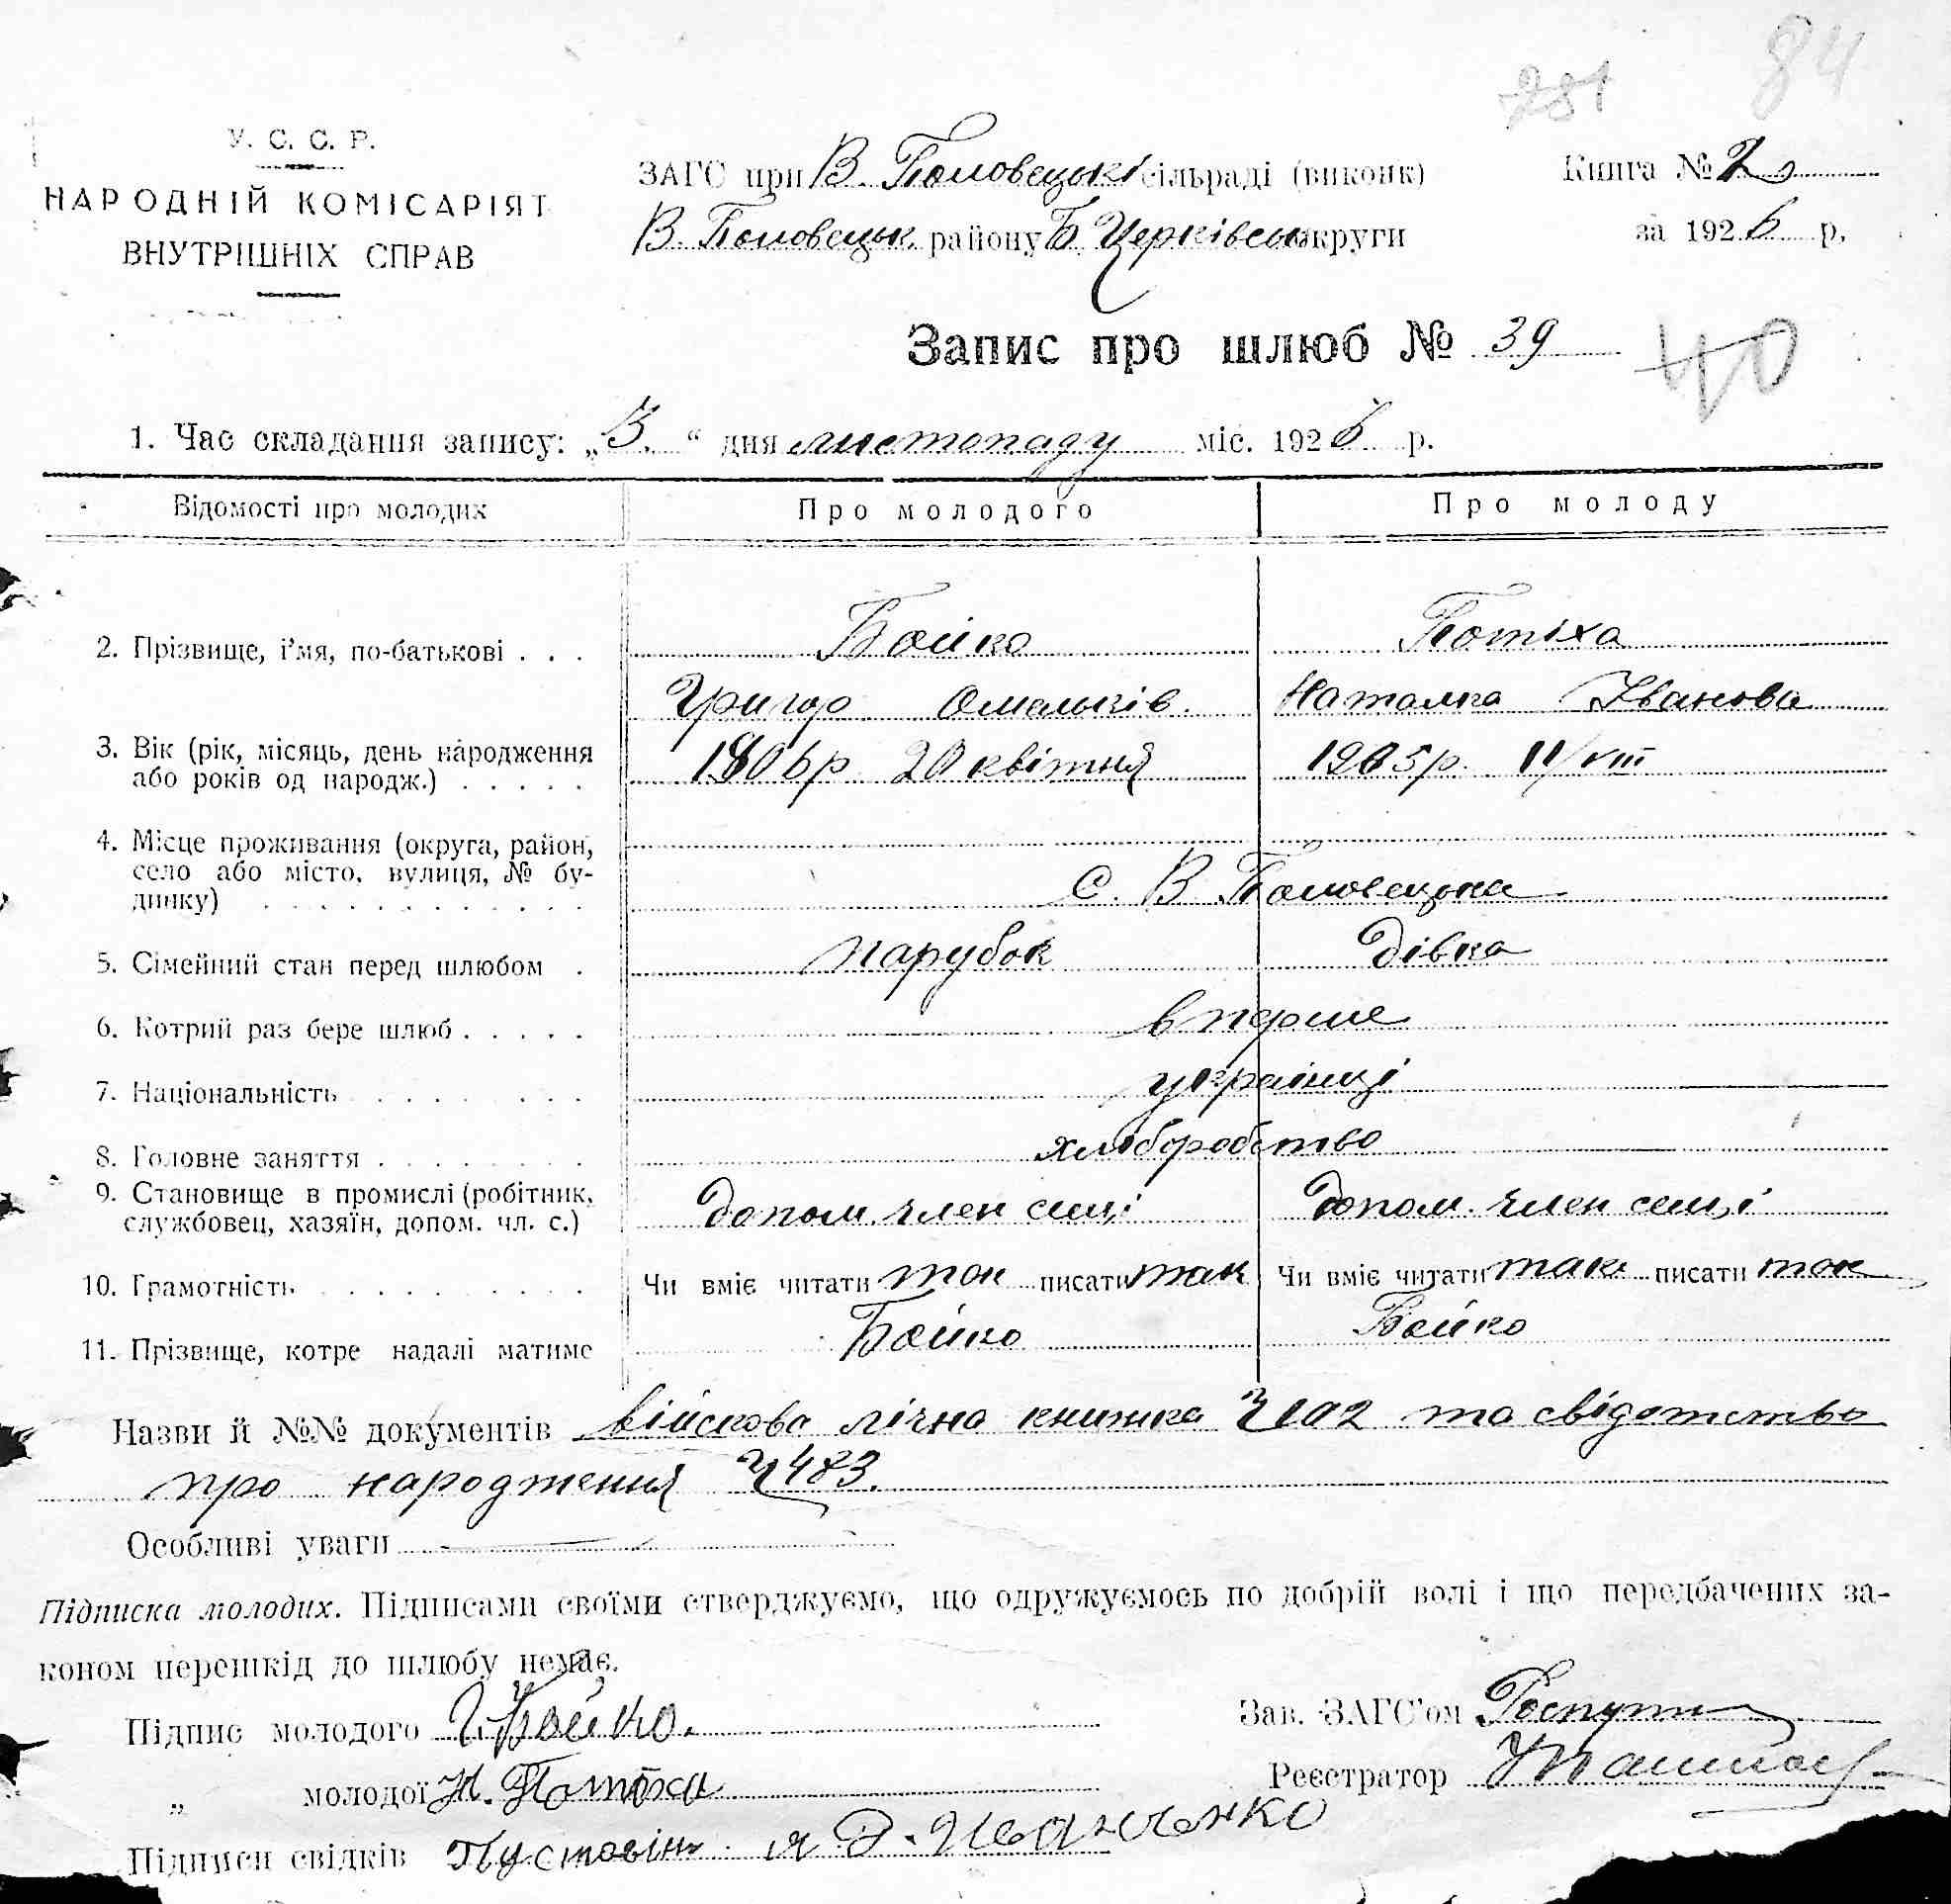 84
281
У. С. С. Р.
НАРОДНІЙ КОМІСАРІЯТ
ВНУТРІШНІХ СПРАВ
ЗАГС при В. Половецькі сільраді (виконк)
Книга № 2
В. Половецьк. району Б. Церківськ округи
за 1926 р.
Запис про шлюб № 39
40
1. Час складання запису: „3." дня листопаду міс. 1926 р.
Відомості про молодих Про молодого Про молоду
2. Прізвище, і'мя, по-батькові . . . Бойко Потіха
Григор Омельків. Наталка Іванова
3. Вік (рік, місяць, день народження
або років од народж.) . . . . . 1906р 20 квітня 1905р. 11/VIII
4. Місце проживання (округа, район,
село або місто, вулиця, № бу-
динку) с. В. Половецьке
5. Сімейний стан перед шлюбом . парубок дівка
6. Котрий раз бере шлюб . . . . . вперше
7. Національність українці
8. Головне заняття хліборобство
9. Становище в промислі (робітник,
службовец, хазяїн, допом. чл. с.) допом. член семі допом. член семі
10. Грамотність Чи вміє читати так писати так Чи вміє читати так писати так
11. Прізвище, котре надалі матиме Бойко Бойко
Назви й №№ документів військова лічна книжка Ч 102 та свідотство
про народження Ч 483.
Особливі уваги
Підписка молодих. Підписами своїми стверджуємо, що одружуємось по добрій волі і що передбачених за-
коном перешкід до шлюбу немає.
Підпис молодого Г. Бойко.
Зав. ЗАГС'ом
„ молодої Н. Потіха
Реєстратор
Підписи свідків Пустовін Іванченко